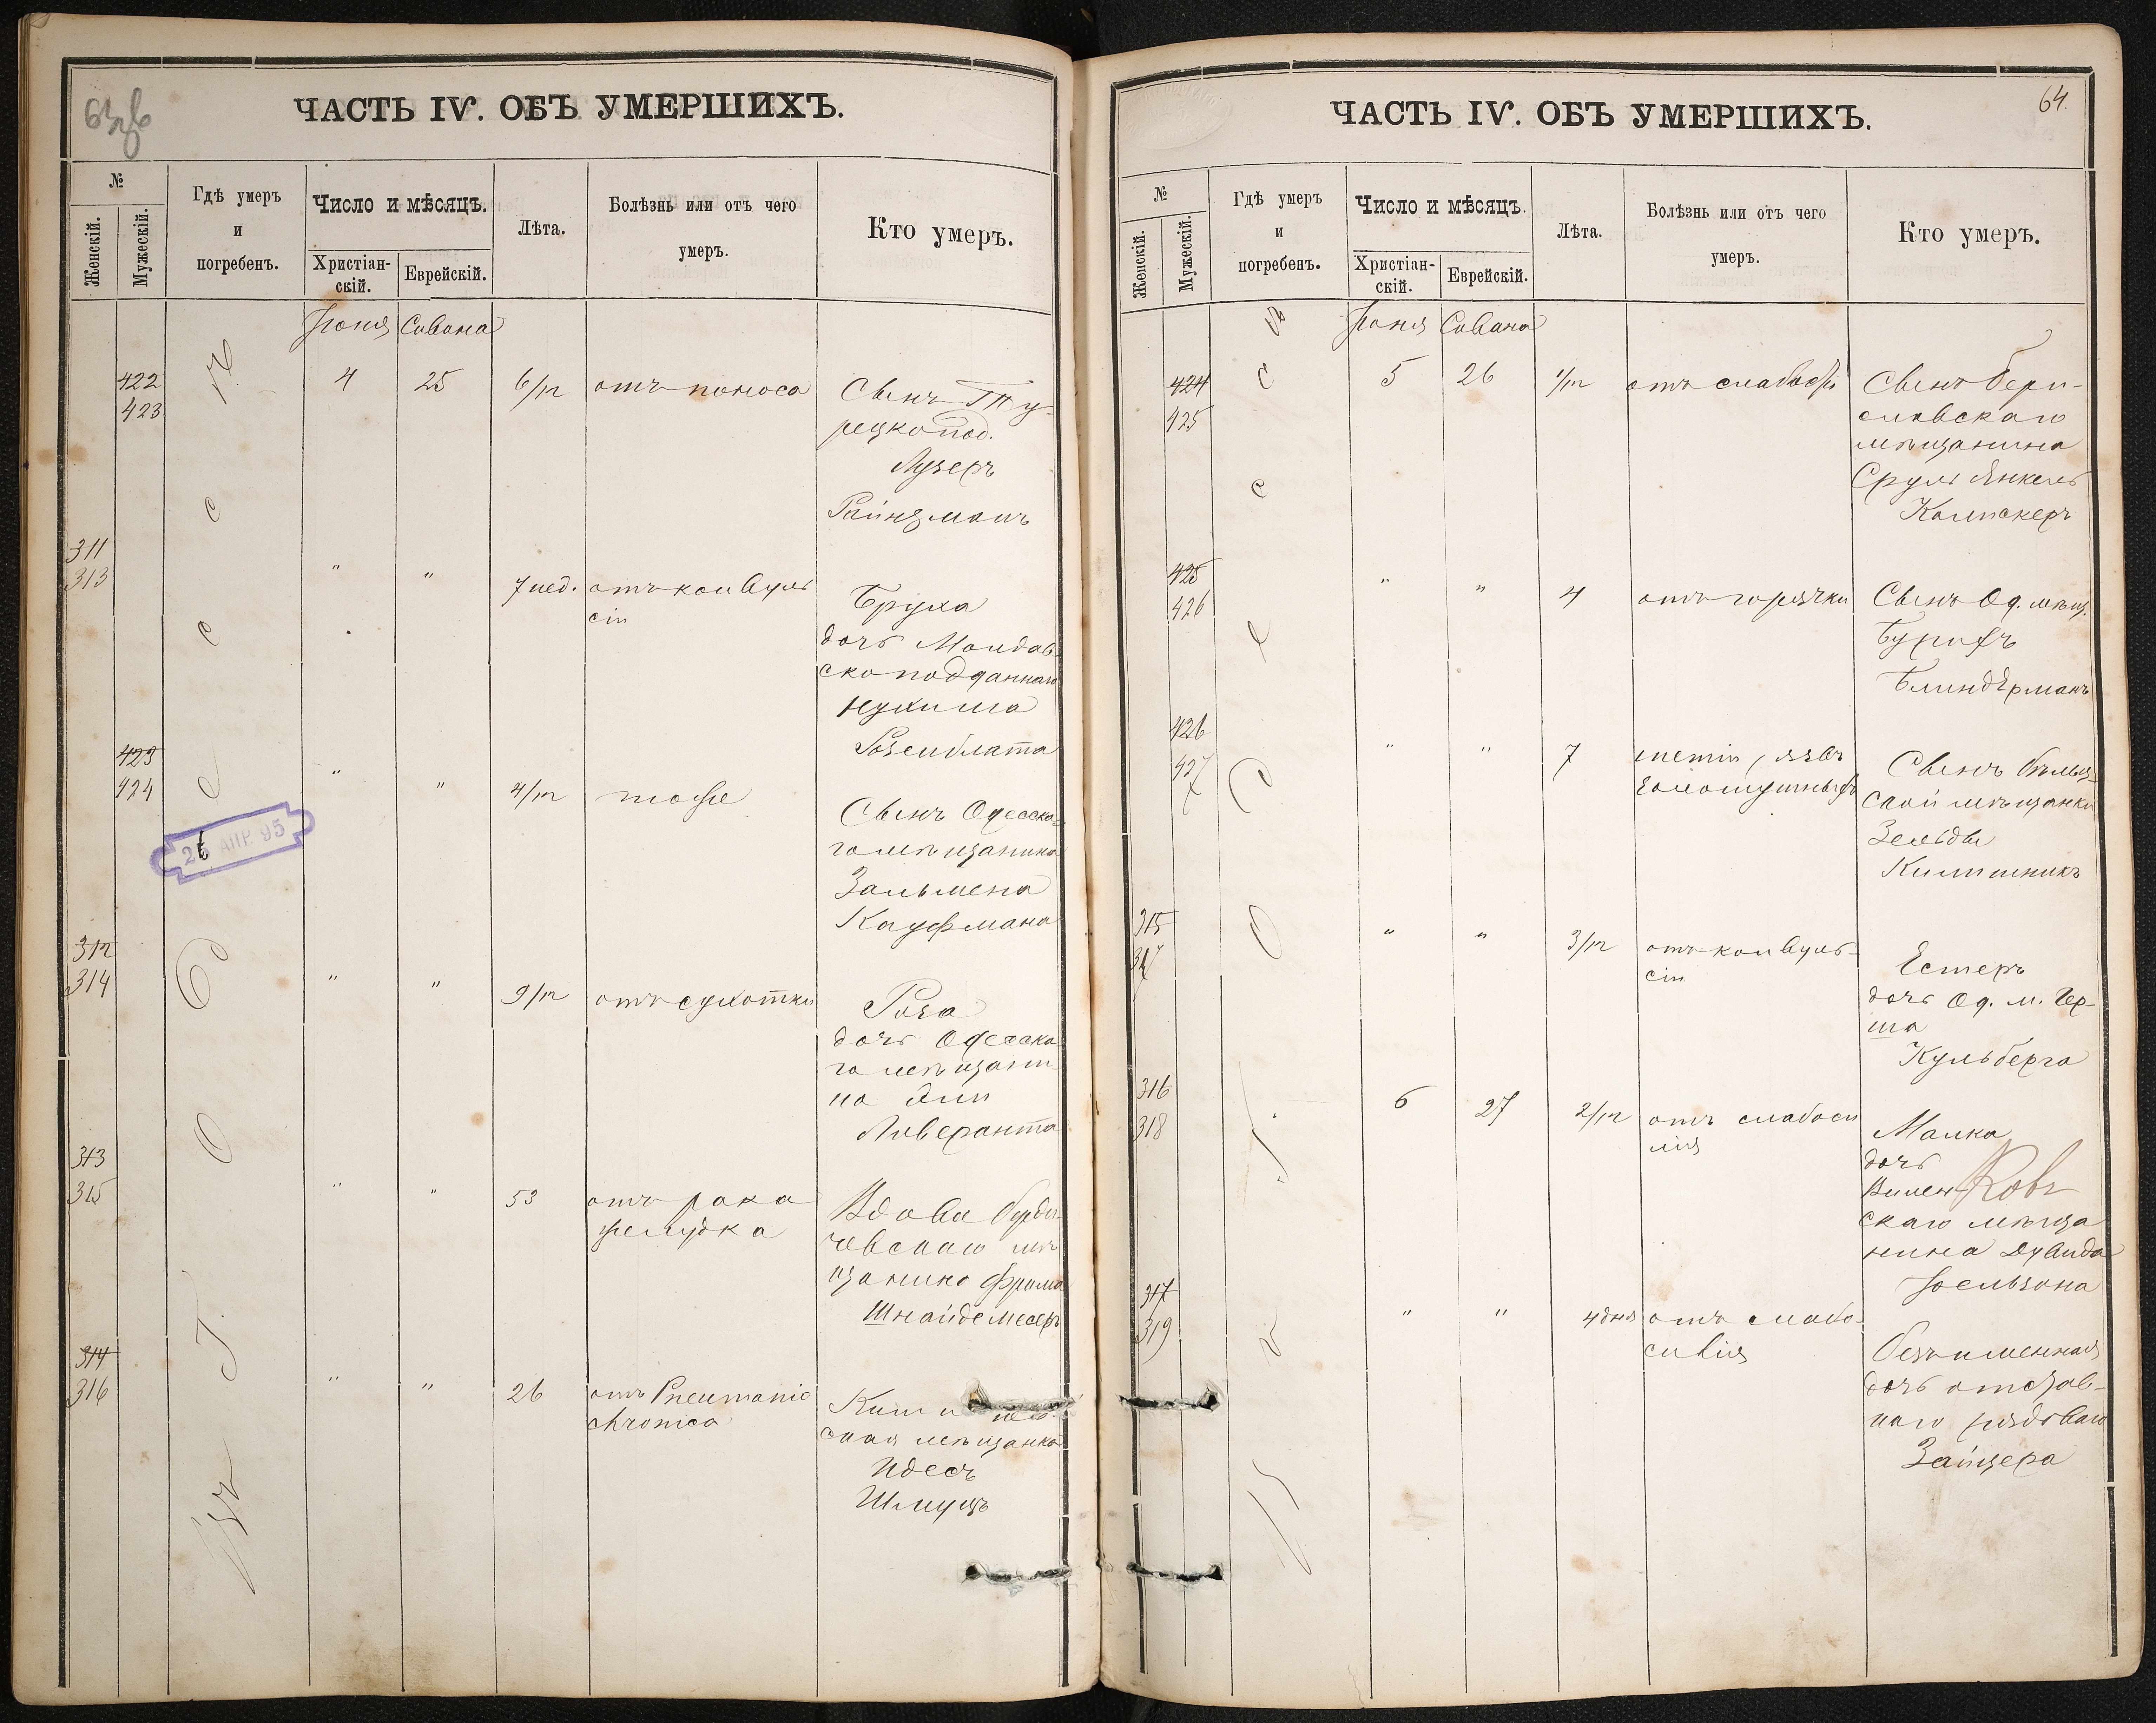 ЧАСТЬ IV. ОБЪ УМЕРШИХЪ.
№
Женскій.
Мужескій.
Гдѣ умеръ
и
погребенъ.
Число и мѣсяцъ.
Христіан-
скій.
Еврейскій.
Лѣта.
Болѣзнь или отъ чего
умеръ.
Кто умеръ.
Іюня Сивана
422 4 25 6/м отъ поноса Сынъ Ту-
423 рецкопод.
Лузеръ
Райнзманъ
311
313 " " 7 нед. отъ конвуль
сіи
Бруха
дочь Молдав-
скоподданнаго
Нухима
Розенблата
423
424 " " 4/м тоже
Сынъ Одесска-
го мѣщанина
Зальмена
Кауфмана
26 АПР. 95
312
314 " " 9/м отъ сухотки
Роза
дочь Одесска
го мѣщани-
на
Ливеранта
313
315 " " 53 отъ рака
желудка
Вдова Берди-
чевскаго мѣ
щанина Фрима
Шнайдемесеръ
314
316 " " 26 отъ Pneumonia
chronica
ская мѣщанка
Идесъ
Шмуцъ
въ г. Одессѣ
ЧАСТЬ IV. ОБЪ УМЕРШИХЪ.
64.
№
Женскій.
Мужескій.
Гдѣ умеръ
и
погребенъ.
Число и мѣсяцъ.
Христіан-
скій.
Еврейскій.
Лѣта.
Болѣзнь или отъ чего
умеръ.
Кто умеръ.
Іюня Сивана
424 5 26 1/м отъ слабости Сынъ Бери-
425 славскаго
мѣщанина
Сруль Янкель
425
426 " " 4 отъ горячки Сынъ Од. мѣщ.
Бурихъ
Блиндерманъ
426
427 " " 7
Сынъ Бѣльц-
ской мѣщанки
Зельды
Килимникъ
315
317 " " 3/м отъ конвуль-
сіи
Естеръ
дочь Од. м. Гер-
ша
Кульберга
316
318 6 27 2/м отъ слабоси
лія
Малка
дочь
Вилен Ков
скаго мѣща
нина Дувида
Іоельзона
317
319 " " 4 дня отъ слабо-
силія
безъименная
дочь отстав-
наго рядоваго
Зайцера
въ г. Одессѣ